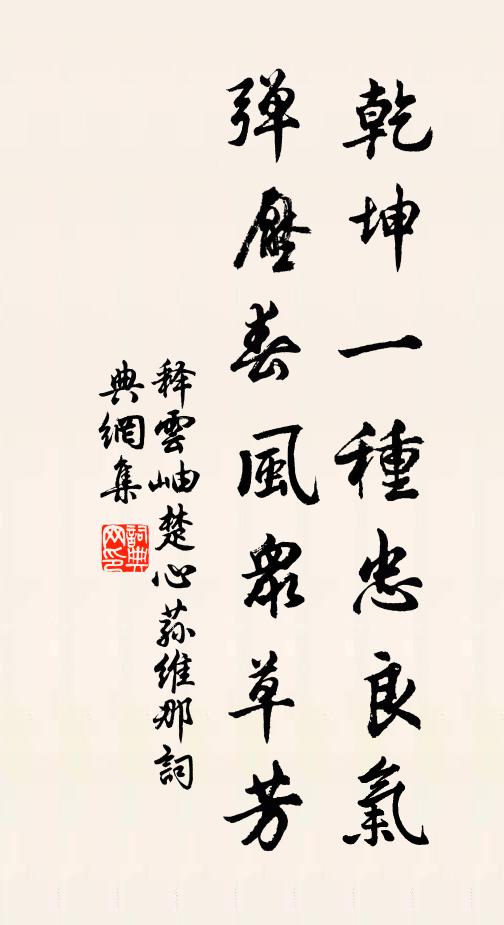 乾坤一種忠良氣
弹壓春風衆草芳
释雲岫楚心荪維那詞
典網集
詞典网印